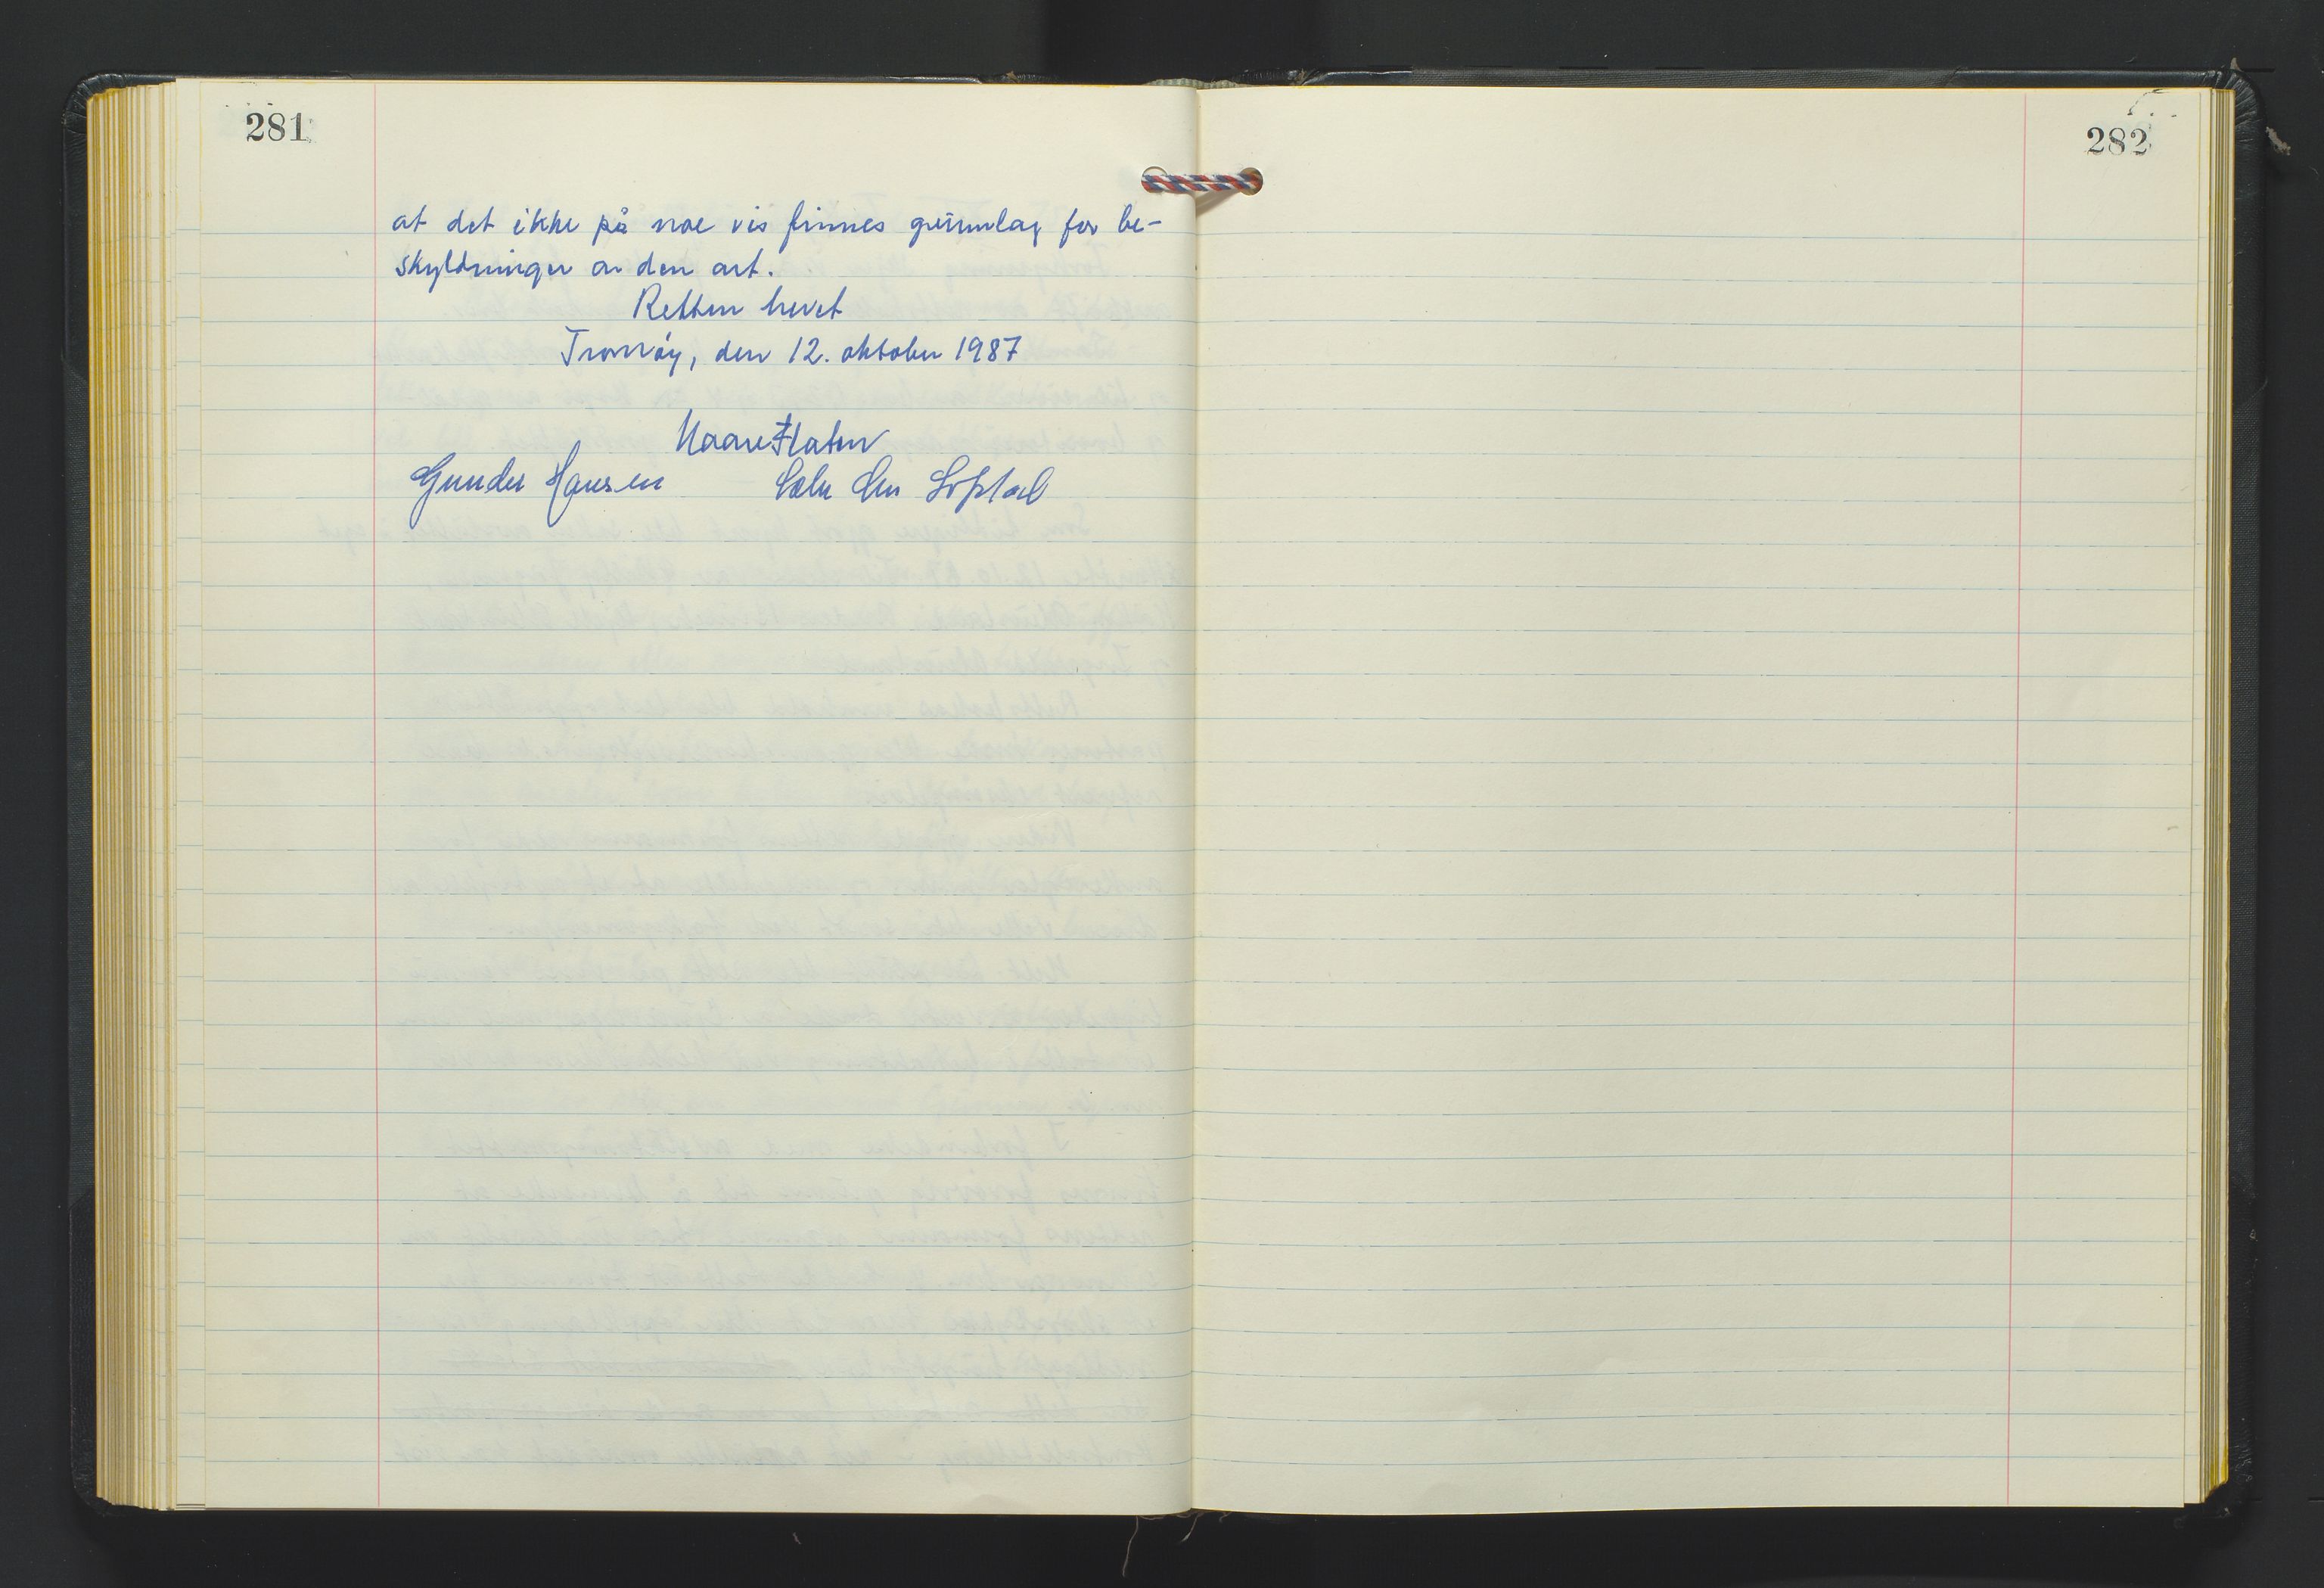 281
at det ikke på noe vis finnes grunnlag for be-
skyldninger av den art.
Retten hevet
Tromøy, den 12. oktober 1987
Kaare Flaten
Gunder Hansen
282